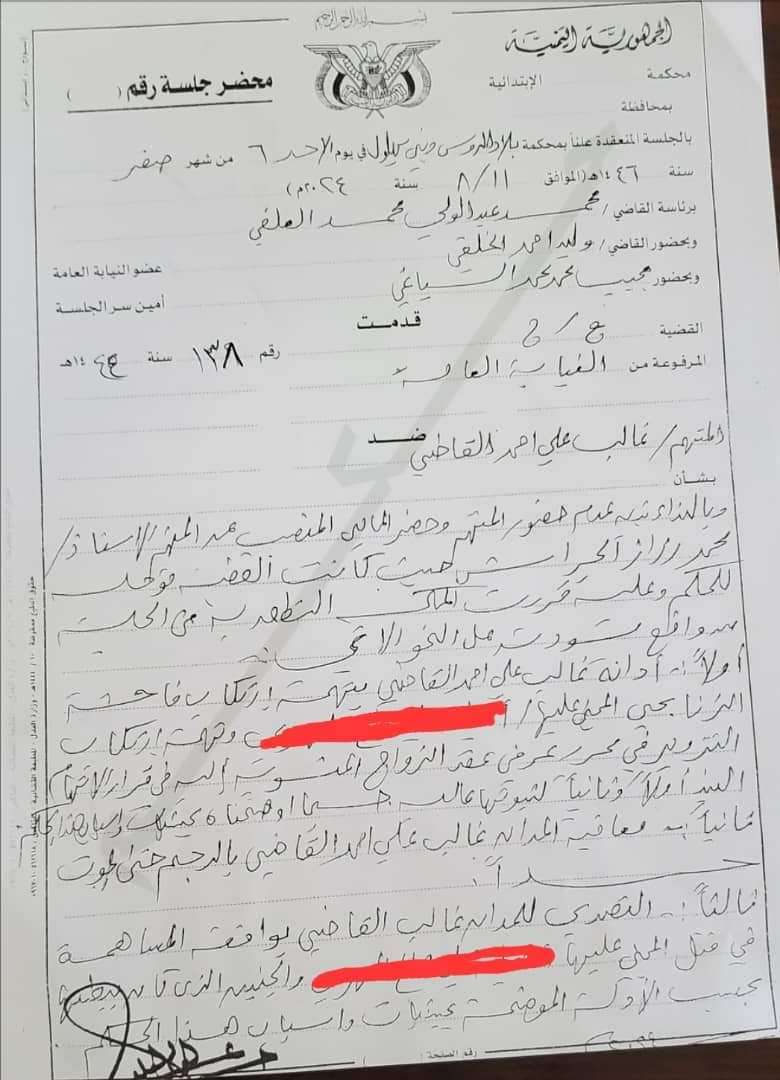 بسم الله الرحمن الرحيم
الجمهورية اليمنية
محكمة الإبتدائية
بمحافظة
محضر جلسة رقم ( )
بالجلسة المنعقدة علناً بمحكمة بلاد الروس وبني بهلول في يوم الاحد ٦ من شهر صفر
سنة ١٤٤٦هـ (الموافق ٨/١١ سنة ٢٠٢٤م)
برئاسة القاضي/ محمد عبدالولي محمد العلفي
وبحضور القاضي/ وليد احمد الخلقي عضو النيابة العامة
وبحضور مجيب محمد محمد السياغي أمين سر الجلسة
قدمت
القضية ج/ج رقم ١٣٨ سنة ١٤٤٥هـ
المرفوعة من النيابة العامة
ضد
المتهم/ غالب علي احمد القاضي
بشأن
وبالنداء تبين عدم حضور المتهم وحضر المحامي المنصب عن المتهم الاستاذ/
محمد الحراش حيث كانت القضية مؤجلة
للحكم وعليه قررت المحكمة النطق به من الجلسة
من واقع مسودته على النحو الاتي :
أولاً: أدانة غالب علي احمد القاضي بتهمة ارتكاب فاحشة
الزنا بحق المجني عليها/ وتهمة ارتكاب
التزوير في محرر عرفي عقد الزواج المنسوبة إليه في قرار الاتهام
البند أولاً وثانياً لثبوتها عليه حسبما اوضحناه بحيثيات واسباب هذا الحكم
ثانياً: معاقبة المدان غالب علي احمد القاضي بالرجم حتى الموت
حداً.
ثالثاً: التصدي للمدان غالب القاضي بواقعة المساهمة
في قتل المجني عليها والجنين الذي كان ببطنها
بحسب الأدلة الموضحة بحيثيات واسباب هذا الحكم
رقم الصفحة (